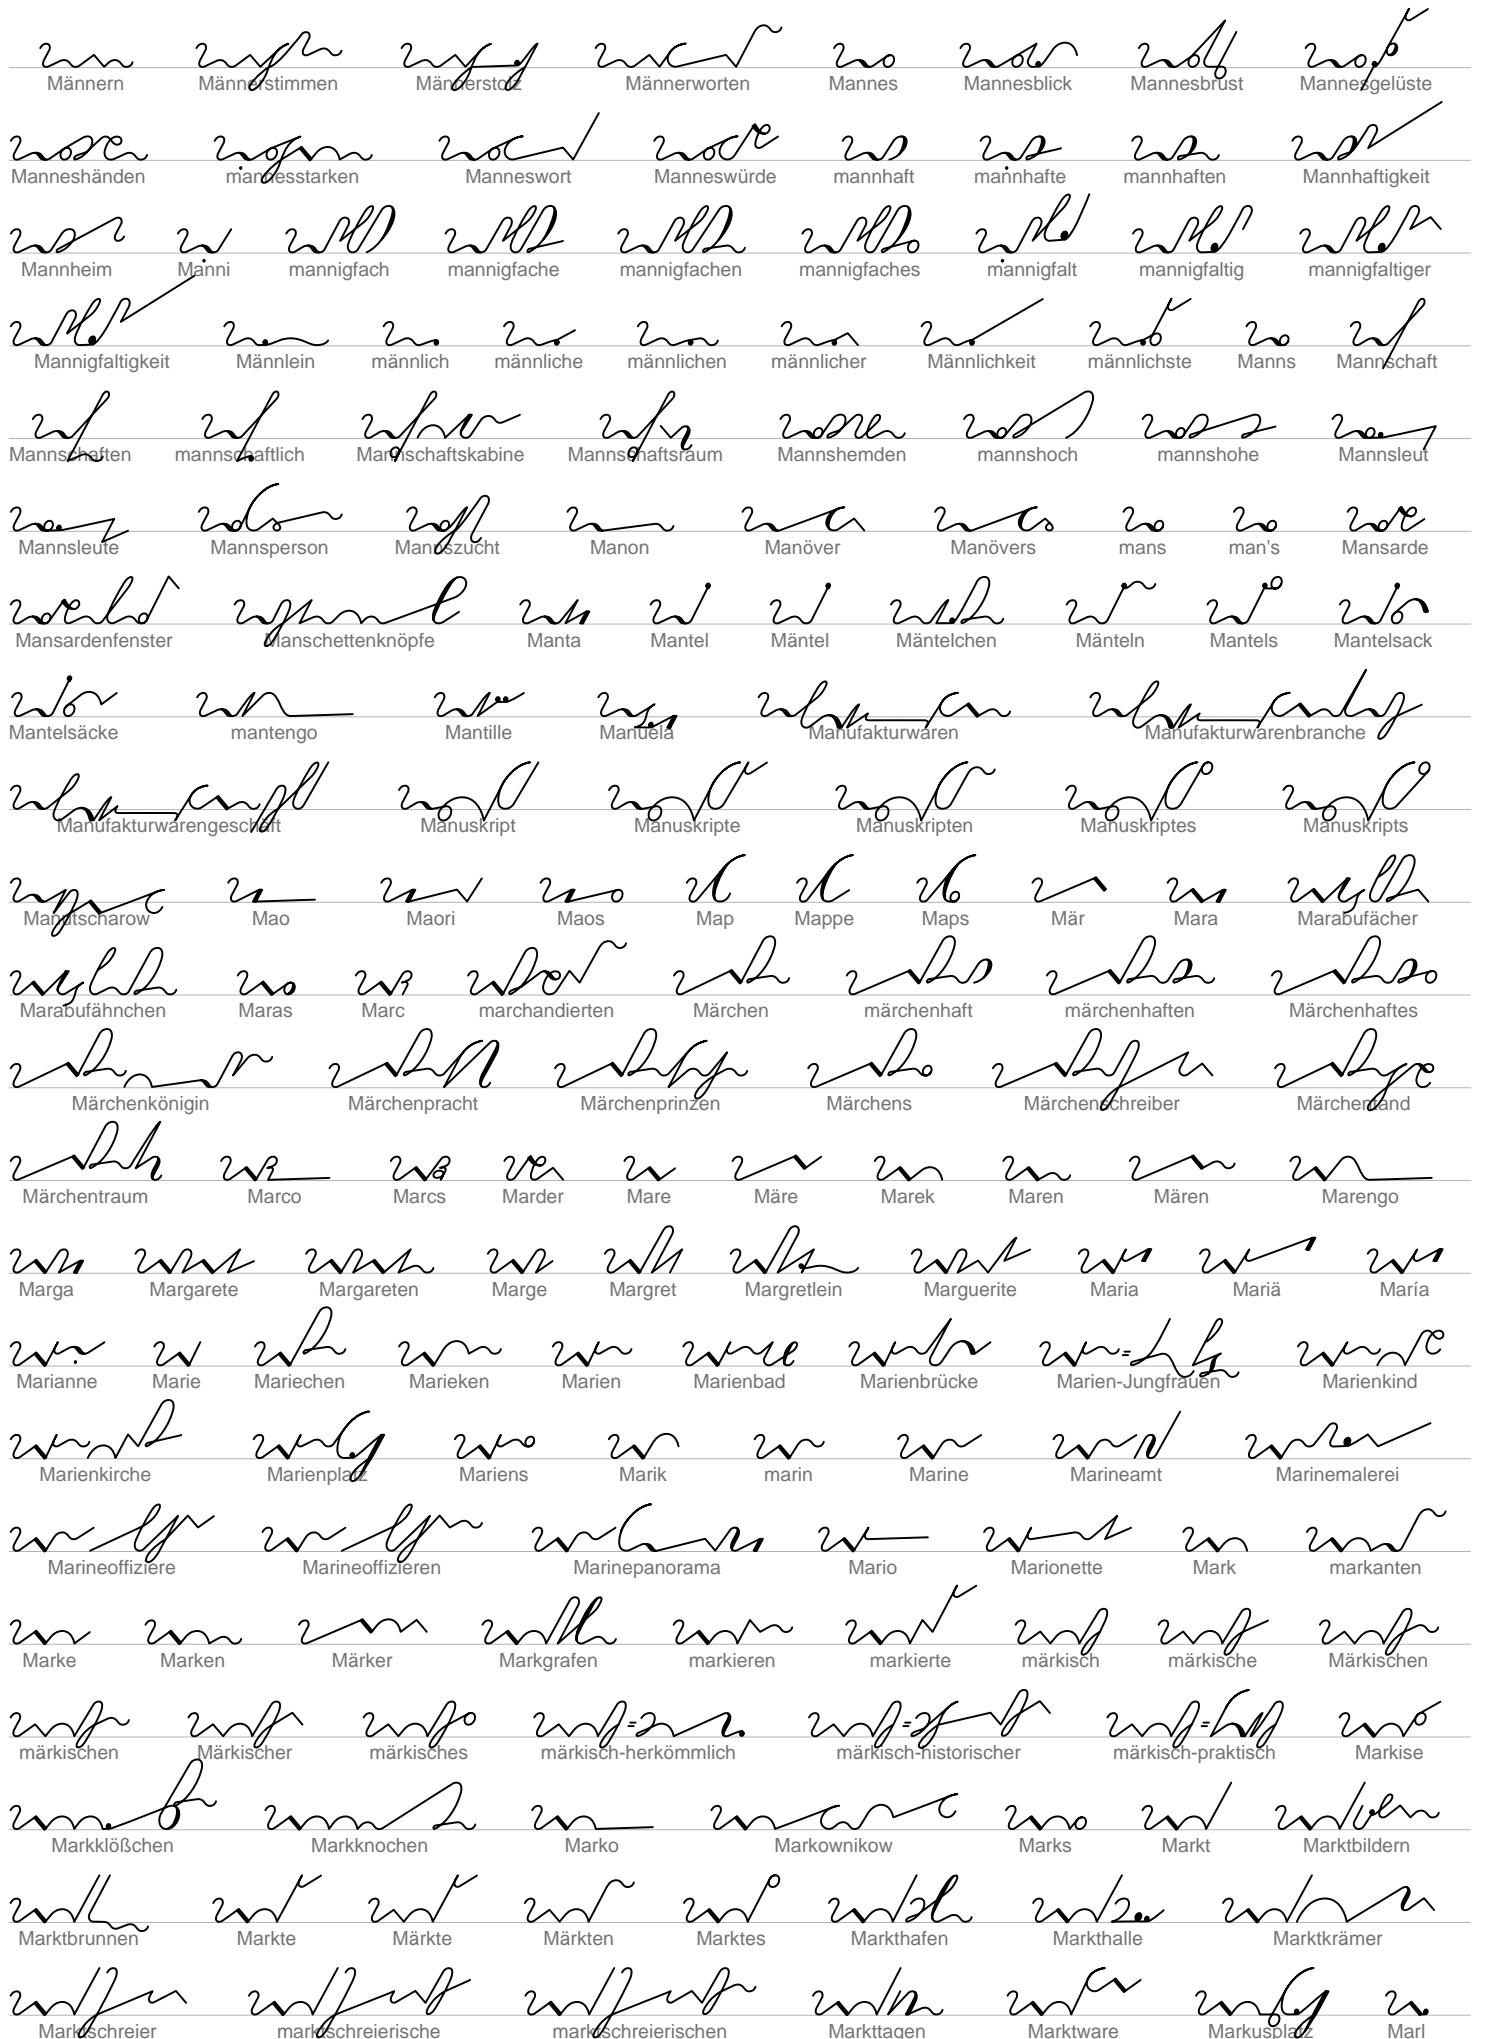 Männern Männerstimmen Männerstolz Männerworten Mannes Mannesblick Mannesbrust Mannesgelüste
Manneshänden mannesstarken Manneswort Manneswürde mannhaft mannhafte mannhaften Mannhaftigkeit
Mannheim Manni mannigfach mannigfache mannigfachen mannigfaches mannigfalt mannigfaltig mannigfaltiger
Mannigfaltigkeit Männlein männlich männliche männlichen männlicher Männlichkeit männlichste Manns Mannschaft
Mannschaften mannschaftlich Mannschaftskabine Mannschaftsraum Mannshemden mannshoch mannshohe Mannsleut
Mannsleute Mannsperson Mannszucht Manon Manöver Manövers mans man's Mansarde
Mansardenfenster Manschettenknöpfe Manta Mantel Mäntel Mäntelchen Mänteln Mantels Mantelsack
Mantelsäcke mantengo Mantille Manuela Manufakturwaren Manufakturwarenbranche
Manufakturwarengeschäft Manuskript Manuskripte Manuskripten Manuskriptes Manuskripts
Manutscharow Mao Maori Maos Map Mappe Maps Mär Mara Marabufächer
Marabufähnchen Maras Marc marchandierten Märchen märchenhaft märchenhaften Märchenhaftes
Märchenkönigin Märchenpracht Märchenprinzen Märchens Märchenschreiber Märchentand
Märchentraum Marco Marcs Marder Mare Märe Marek Maren Mären Marengo
Marga Margarete Margareten Marge Margret Margretlein Marguerite Maria Mariä María
Marianne Marie Mariechen Marieken Marien Marienbad Marienbrücke Marien-Jungfrauen Marienkind
Marienkirche Marienplatz Mariens Marik marin Marine Marineamt Marinemalerei
Marineoffiziere Marineoffizieren Marinepanorama Mario Marionette Mark markanten
Marke Marken Märker Markgrafen markieren markierte märkisch märkische Märkischen
märkischen Märkischer märkisches märkisch-herkömmlich märkisch-historischer märkisch-praktisch Markise
Markklößchen Markknochen Marko Markownikow Marks Markt Marktbildern
Marktbrunnen Markte Märkte Märkten Marktes Markthafen Markthalle Marktkrämer
Marktschreier marktschreierische marktschreierischen Markttagen Marktware Markusplatz Marl